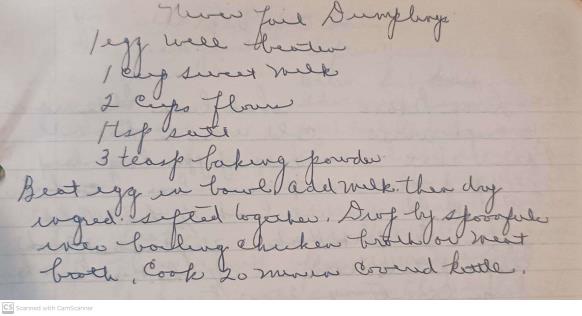 Never Fail Dumplings
1 egg well beaten
1 cup sweet milk
2 cups flour
1 tsp salt
3 teasp baking powder
Beat egg in bowl. add milk. then dry
ingred. sifted together. Drop by spoonfuls
into boiling chicken broth or meat
broth. Cook 20 min in covered kettle.
CS Scanned with CamScanner